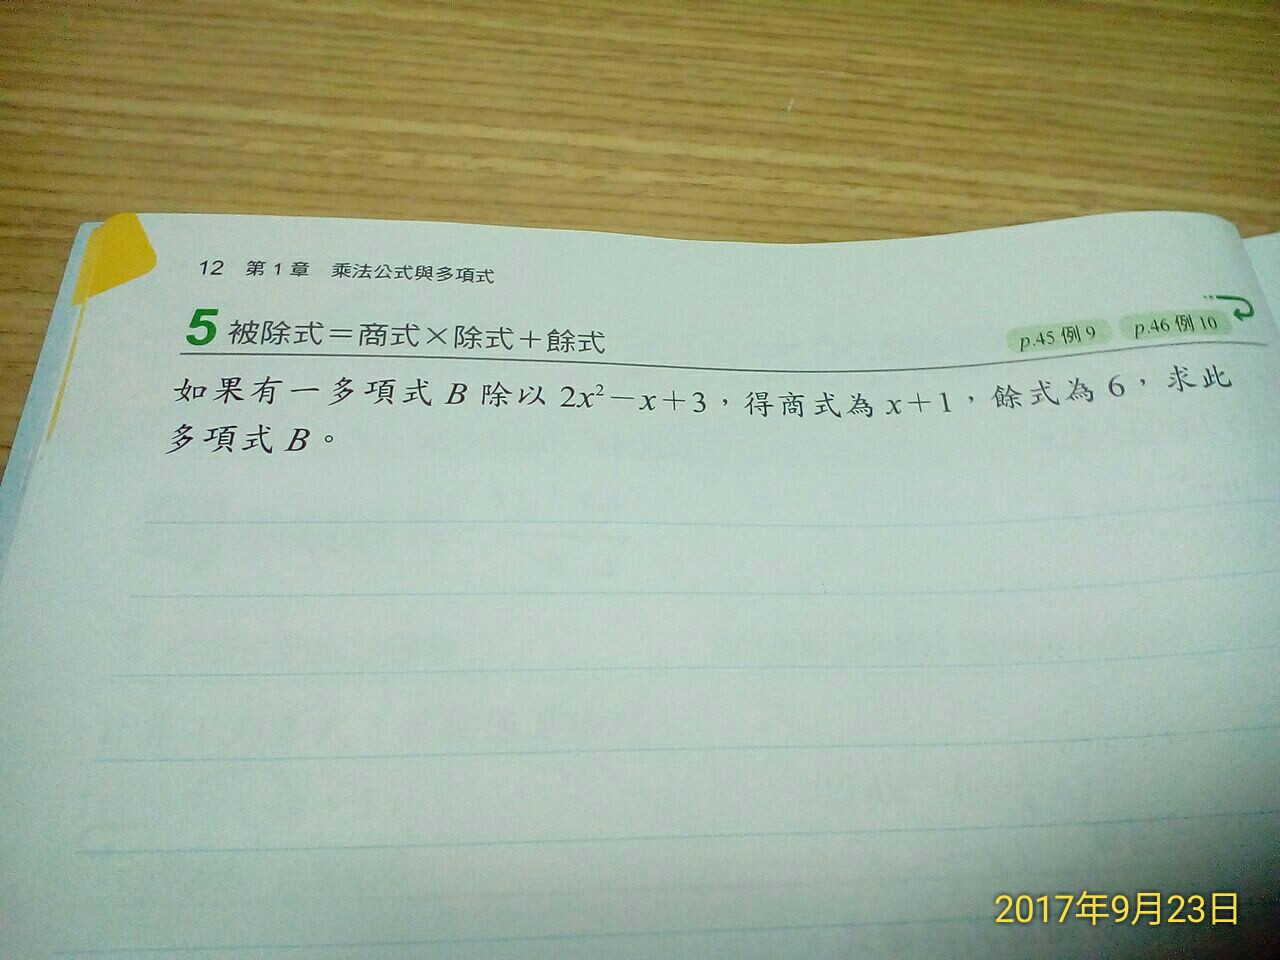 12 第1章 乘法公式與多項式
5 被除式＝商式×除式＋餘式 p.45 例9 p.46 例10
如果有一多項式 B 除以 2x²－x＋3，得商式為 x＋1，餘式為 6，求此
多項式 B。
2017年9月23日